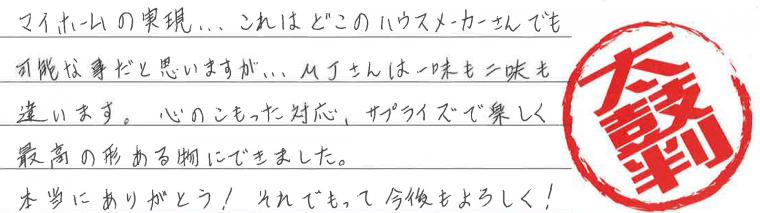 マイホームの実現... これはどこのハウスメーカーさんでも
可能な事だと思いますが... MJさんは一味も二味も
違います。 心のこもった対応、サプライズで楽しく
最高の形ある物にできました。
本当にありがとう! それでもって今後もよろしく!
太鼓判